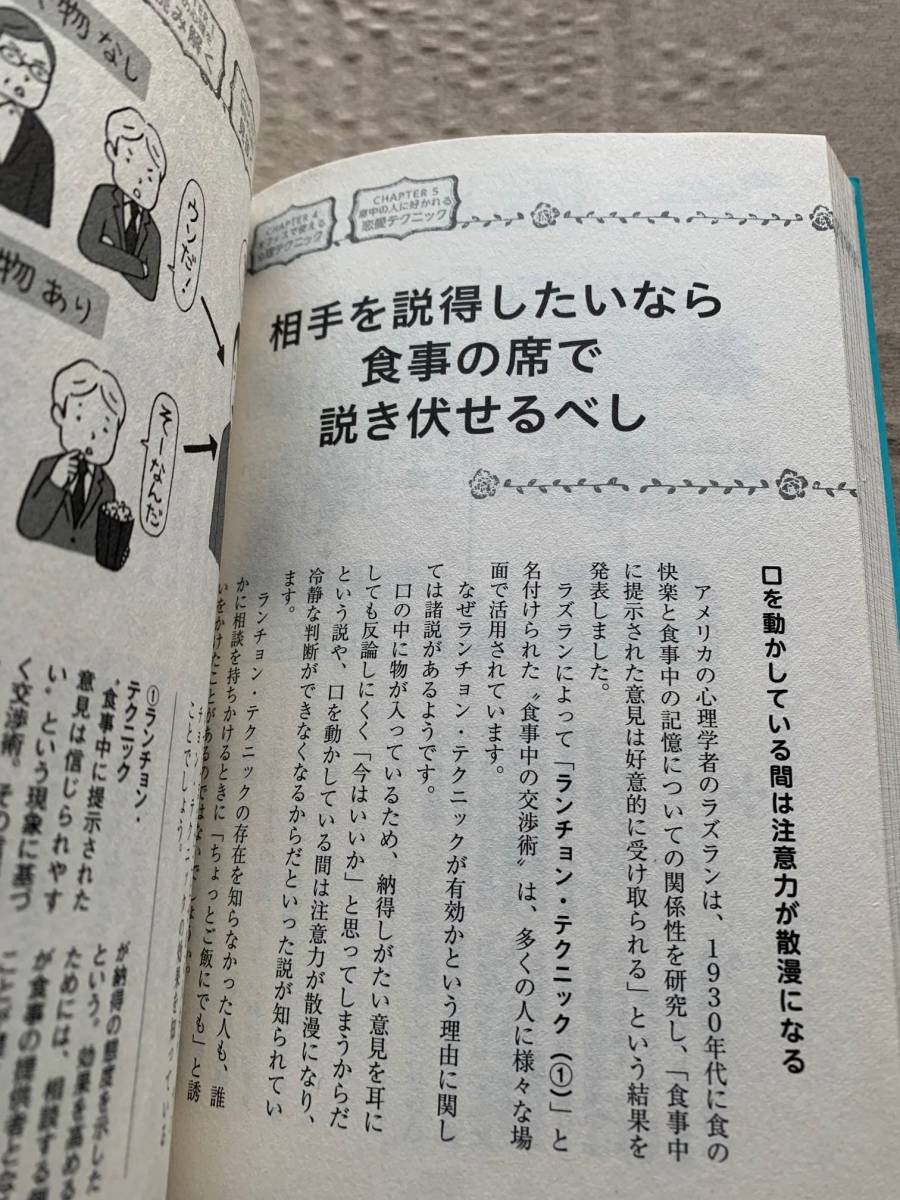 CHAPTER 5
意中の人に好かれる
恋愛テクニック
CHAPTER 4
オフィスで使える
心理テクニック
相手を説得したいなら
食事の席で
説き伏せるべし
口を動かしている間は注意力が散漫になる
アメリカの心理学者のラズランは、1930年代に食の
快楽と食事中の記憶についての関係性を研究し、「食事中
に提示された意見は好意的に受け取られる」という結果を
発表しました。
ラズランによって「ランチョン・テクニック(①)」と
名付けられた〝食事中の交渉術〟は、多くの人に様々な場
面で活用されています。
なぜランチョン・テクニックが有効かという理由に関し
ては諸説があるようです。
口の中に物が入っているため、納得しがたい意見を耳に
しても反論しにくく「今はいいか」と思ってしまうからだ
という説や、口を動かしている間は注意力が散漫になり、
冷静な判断ができなくなるからだといった説が知られてい
ます。
ランチョン・テクニックの存在を知らなかった人も、誰
かに相談を持ちかけるときに「ちょっとご飯にでも」と誘
いをかけたことがあるのではないでしょうか。
ことでしょう。
物なし
ウンだ!
物あり
そーなんだ
①ランチョン・
テクニック
〝食事中に提示された
意見は信じられやす
い〟という現象に基づ
く交渉術。その
が納得の態度を示した
という。効果を高める
ためには、相談する
が食事の提供者と